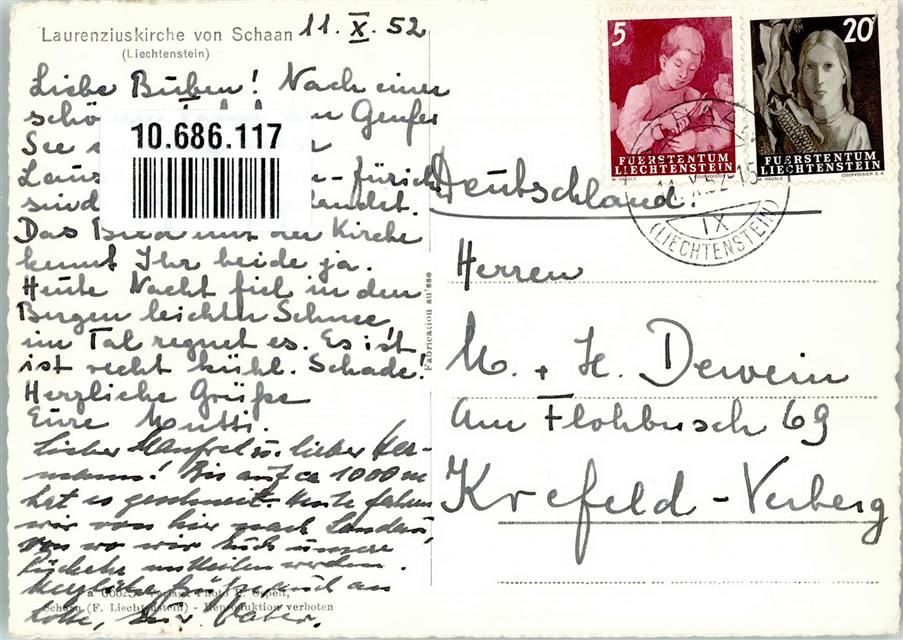 Laurenziuskirche von Schaan 11. X. 52
(Liechtenstein)
Liebe Buben! Nach einer
schö Genfer
See
10.686.117
Laus - Zürich
sind landet.
Das Bild mit der Kirche
kennt Ihr beide ja.
Heute Nacht fiel in den
Bergen leichter Schnee,
im Tal regnet es. Es ist
ist recht kühl. Schade!
Herzliche Grüße
Eure Mutti.
Lieber Manfred u. lieber Her-
mann! Bis auf ca 1000 m
hat es geschneit. Heute fahren
wir von hier nach
von wo wir Euch unsere
Rückkehr mitteilen werden.
Herzliche Grüße auch an
Euer Vater.
Verlag Photo Ospelt,
Schaan (F. Liechtenstein) - Reproduktion verboten
Fabrication suisse
5
FUERSTENTUM
LIECHTENSTEIN
M. HÄUSLE COURVOISIER
20
FUERSTENTUM
LIECHTENSTEIN
M. HÄUSLE COURVOISIER S.A.
IX
(LIECHTENSTEIN)
Deutschland!
Herren
M. + H. Dewein
Am Flohbusch 69
Krefeld-Verberg